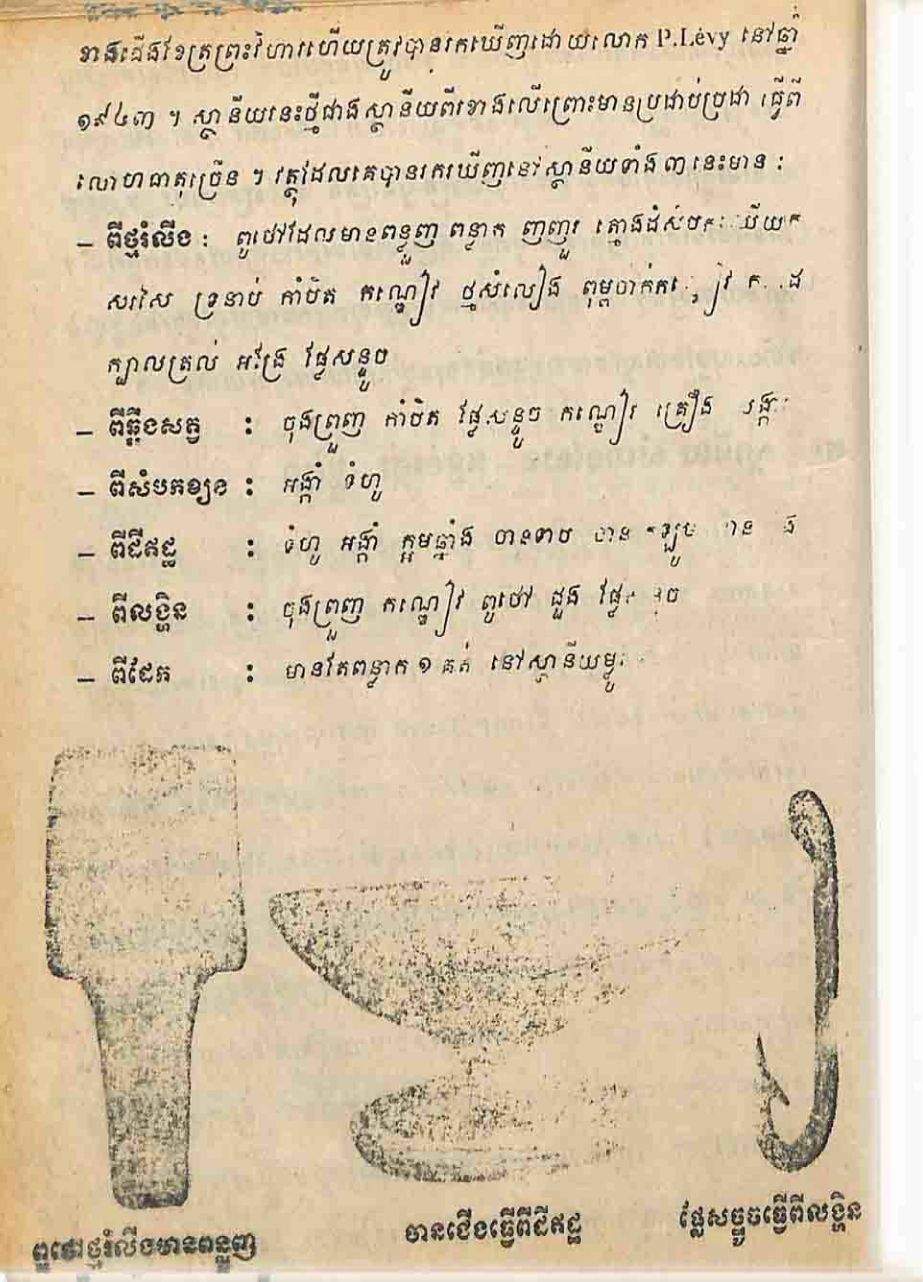 ខាងជើងខែត្រព្រះវិហារហើយត្រូវបានរកឃើញដោយលោក P.Lévy នៅឆ្នាំ
១៩៤៣ ។ ស្ថានីយនេះថ្មីជាងស្ថានីយពីរខាងលើព្រោះមានប្រដាប់ប្រដា ធ្វើពី
លោហធាតុច្រើន ។ វត្ថុដែលគេបានរកឃើញនៅស្ថានីយទាំង៣នេះមាន :
– ពីថ្មរំលីង : ពូថៅដែលមានពន្លួញ ពន្លាក ញញួរ ត្មោងដំសំបក
សរសៃ ទ្រនាប់ កាំបិត កណ្ឌៀវ ថ្មសំលៀង ពុម្ពចាក់
ក្បាលត្រល់ អង្រែ ផ្លែសន្ទូច
– ពីឆ្អឹងសត្វ : ចុងព្រួញ កាំបិត ផ្លែសន្ទូច កណ្ឌៀវ គ្រឿង
– ពីសំបកខ្យង : អង្កាំ ទំហូ
– ពីដីឥដ្ឋ : ទំហូ អង្កាំ ក្អមឆ្នាំង ចានទាប ចាន
– ពីលង្ហិន : ចុងព្រួញ កណ្ឌៀវ ពូថៅ ដួង
– ពីដែក : មានតែពន្លាក ១ គត់ នៅស្ថានីយម្លូ
ពូថៅថ្មរំលីងមានពន្លួញ
ចានជើងធ្វើពីដីឥដ្ឋ
ផ្លែសន្ទូចធ្វើពីលង្ហិន